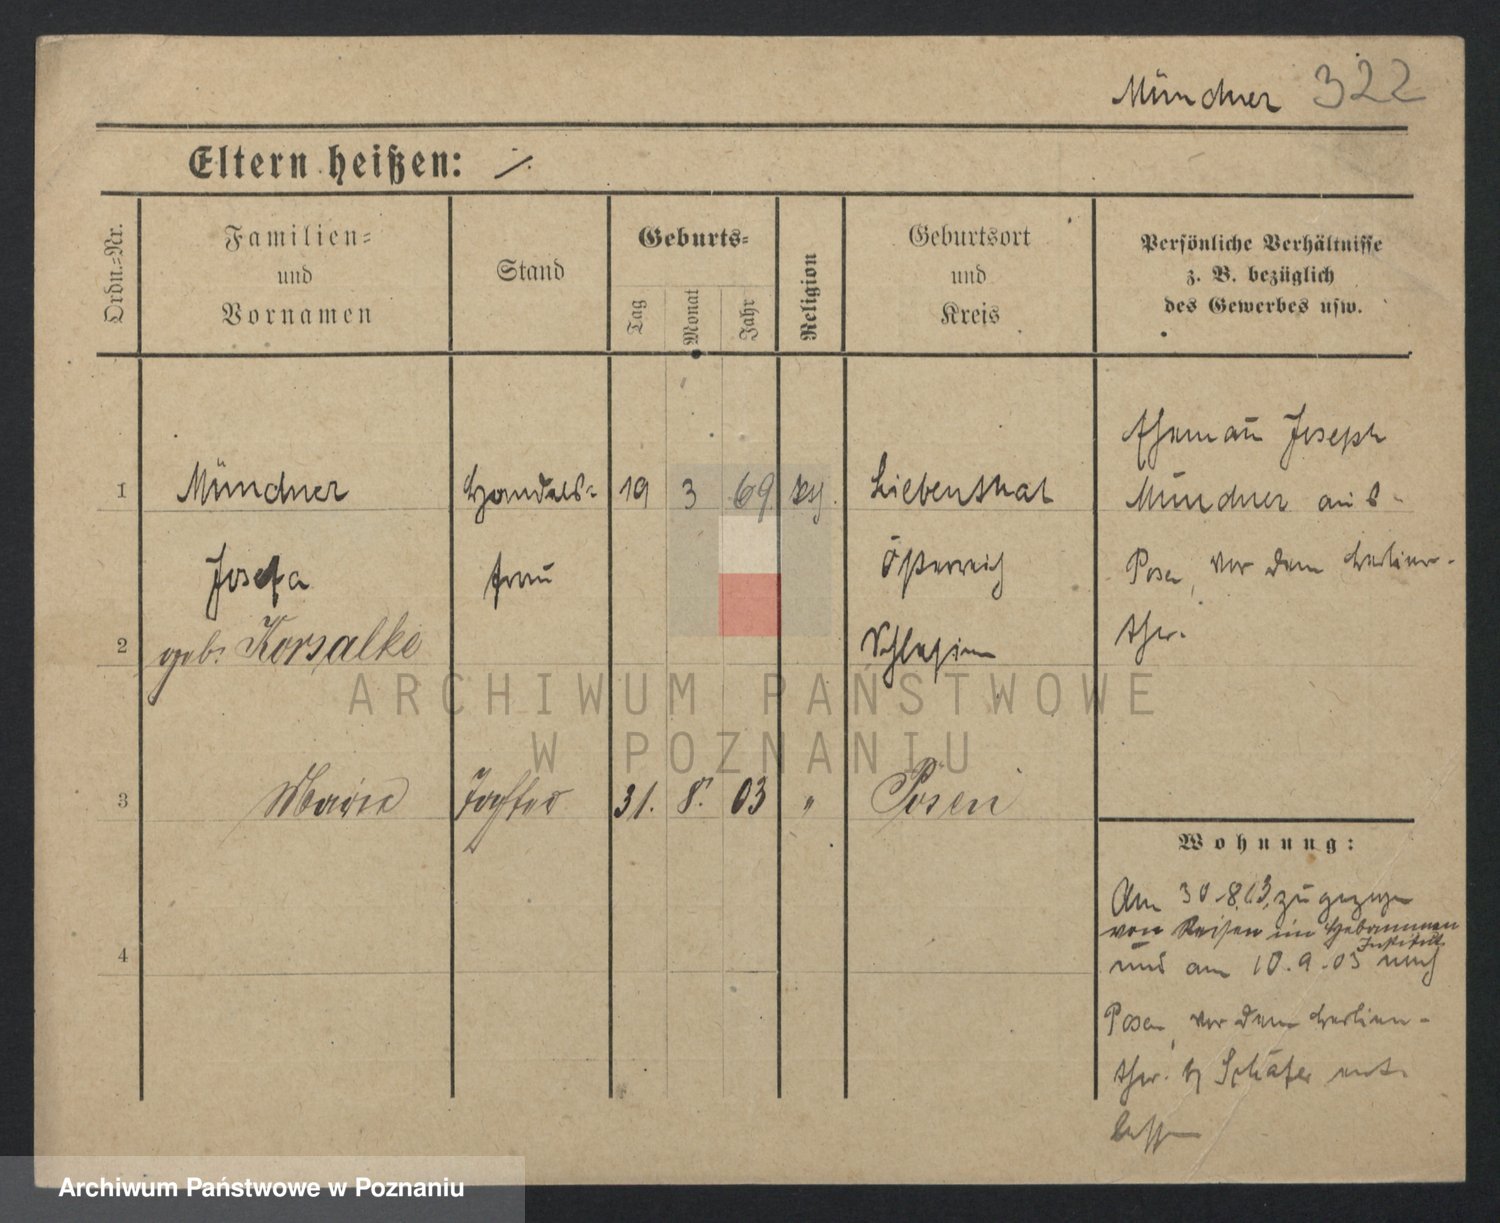 Mündner 322
Eltern heißen: ./.
Ordn.-Nr.
Familien-
und
Vornamen
Stand
Geburts-
Tag
Monat
Jahr
Religion
Geburtsort
und
Kreis
Persönliche Verhältnisse
z. B. bezüglich
des Gewerbes usw.
1 Mündner Handels- 19 3 69 Liebenthal
Josefa frau Österreich
2 geb. Korsalke Schlesien
Ehemañ Joseph
Mündner aus
Posen, vor dem Berliner-
thor.
3 Marie Tochter 31. 8. 03 " Posen
4
Wohnung:
Am 30.8.03 zugezogen
von Reisen im Hebammen
Institut
und am 10.9.03 nach
Posen, vor dem Berliner-
thor b/ Schäfer ent-
lassen
ARCHIWUM PAŃSTWOWE
W POZNANIU
Archiwum Państwowe w Poznaniu